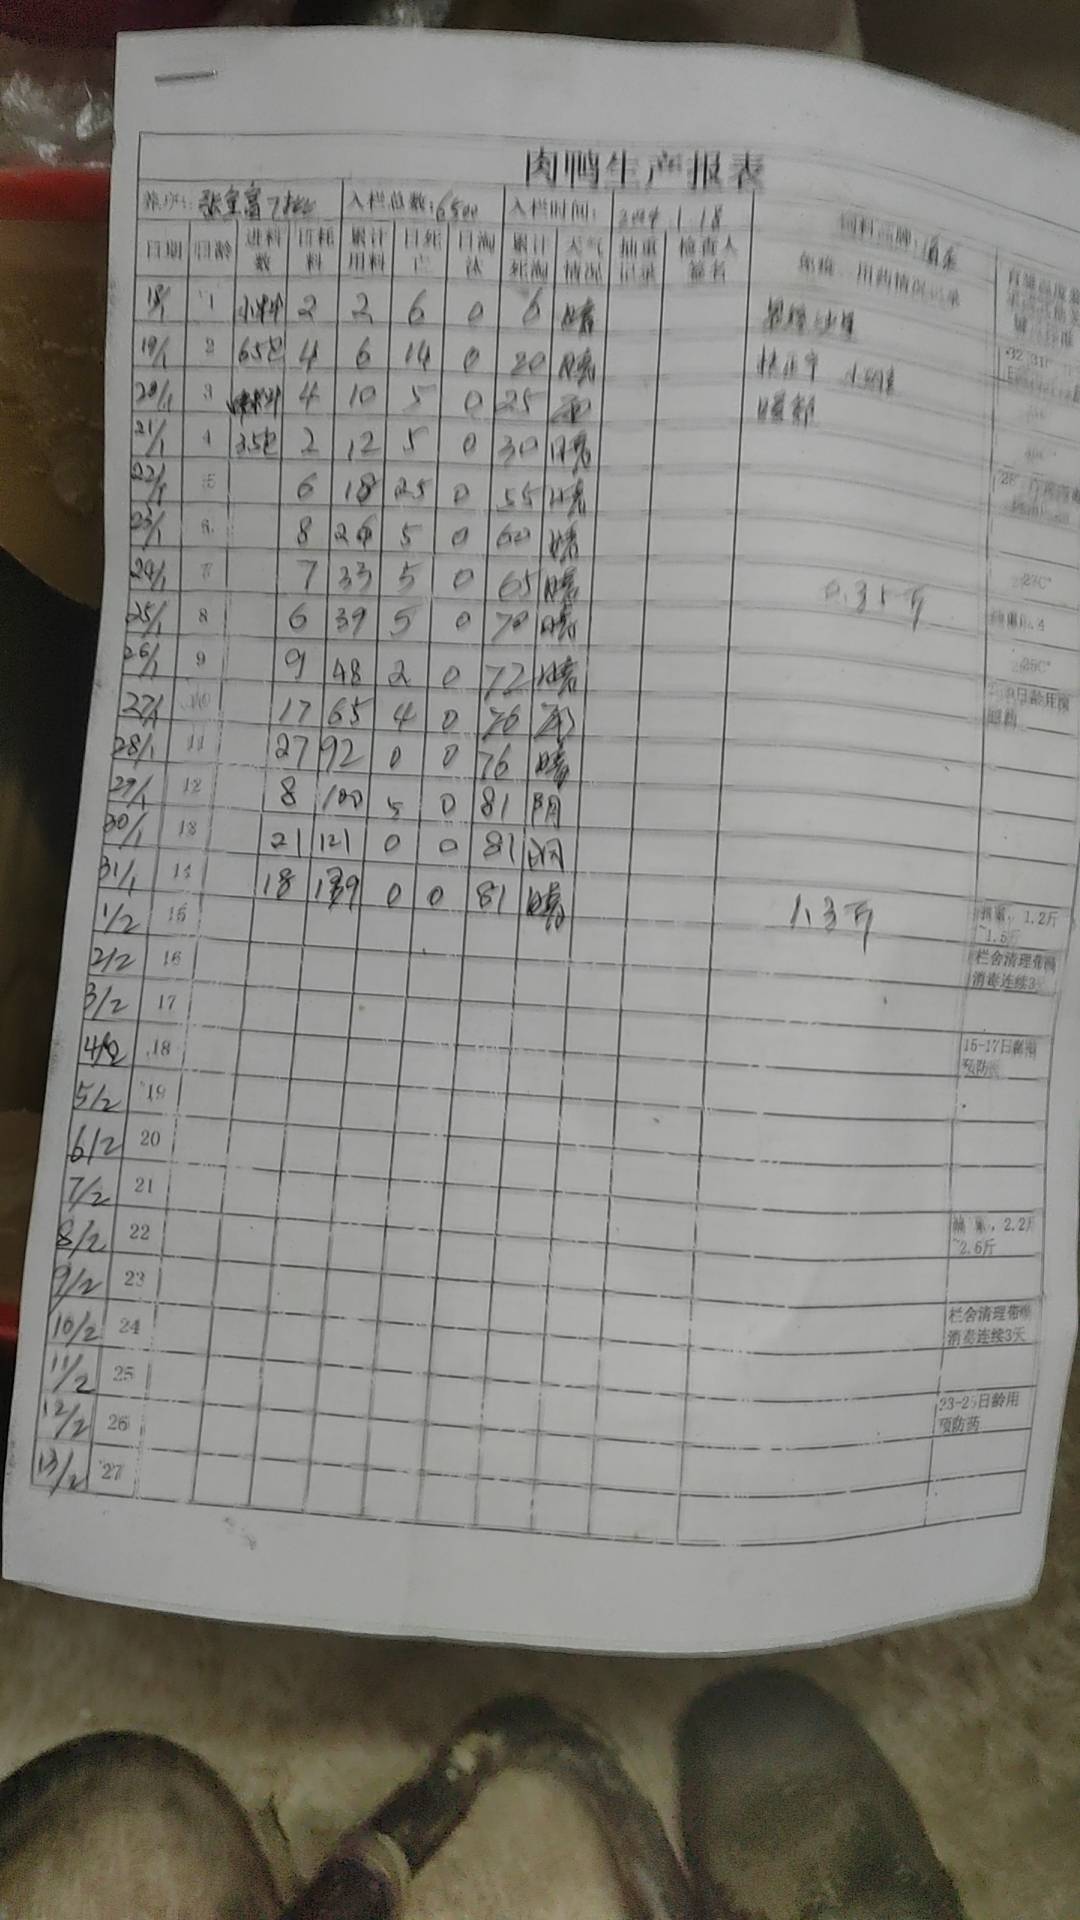 肉鸭生产报表
养户: 入栏总数:6500 入栏时间: 1.18 饲料品牌:
日期 日龄 进料数 日耗料 累计用料 日死亡 日淘汰 累计死淘 天气情况 抽重记录 检查人签名 免疫、用药情况记录
18/1 1 小料 2 2 6 0 6 晴
19/1 2 65包 4 6 14 0 20 晴
20/1 3 4 10 5 0 25 雨
21/1 4 35包 2 12 5 0 30 晴
22/1 5 6 18 25 0 55 晴
23/1 6 8 26 5 0 60 晴
24/1 7 7 33 5 0 65 晴 0.35斤
25/1 8 6 39 5 0 70 晴
26/1 9 9 48 2 0 72 晴
27/1 10 17 65 4 0 76 雨
28/1 11 27 92 0 0 76 晴
29/1 12 8 100 5 0 81 阴
30/1 13 21 121 0 0 81 阴
31/1 14 18 139 0 0 81 晴
1/2 15 1.3斤 抽重，1.2斤~1.5斤
2/2 16 栏舍清理带鸭消毒连续3天
3/2 17
4/2 18 15-17日龄用预防药
5/2 19
6/2 20
7/2 21
8/2 22 抽重，2.2斤~2.6斤
9/2 23
10/2 24 栏舍清理带鸭消毒连续3天
11/2 25
12/2 26 23-25日龄用预防药
13/2 27